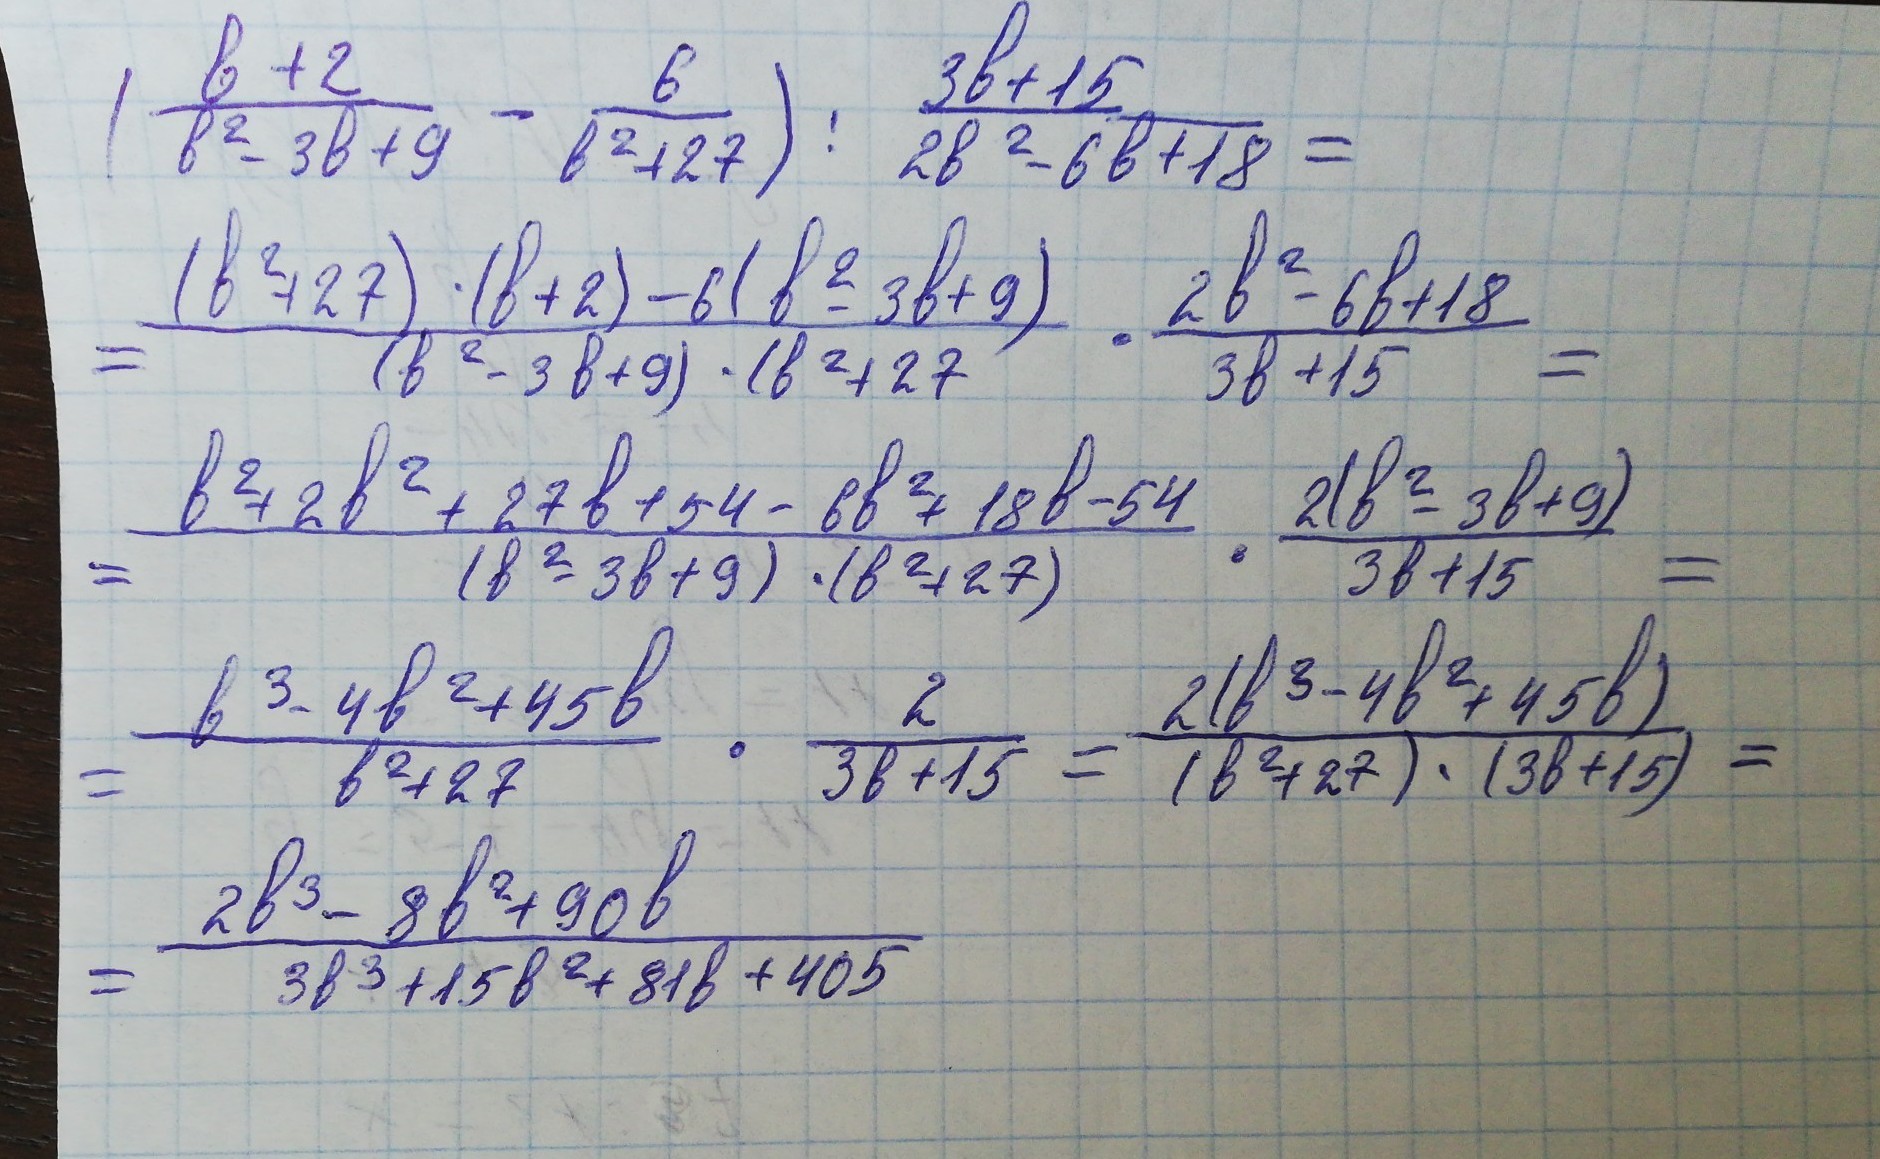 ( (b+2)/(b²-3b+9) - 6/(b²+27) ) : (3b+15)/(2b²-6b+18) =
= ((b²+27)·(b+2)-6(b²-3b+9))/((b²-3b+9)·(b²+27) · (2b²-6b+18)/(3b+15) =
= (b²+2b²+27b+54-6b²+18b-54)/((b²-3b+9)·(b²+27)) · 2(b²-3b+9)/(3b+15) =
= (b³-4b²+45b)/(b²+27) · 2/(3b+15) = 2(b³-4b²+45b)/((b²+27)·(3b+15)) =
= (2b³-8b²+90b)/(3b³+15b²+81b+405)